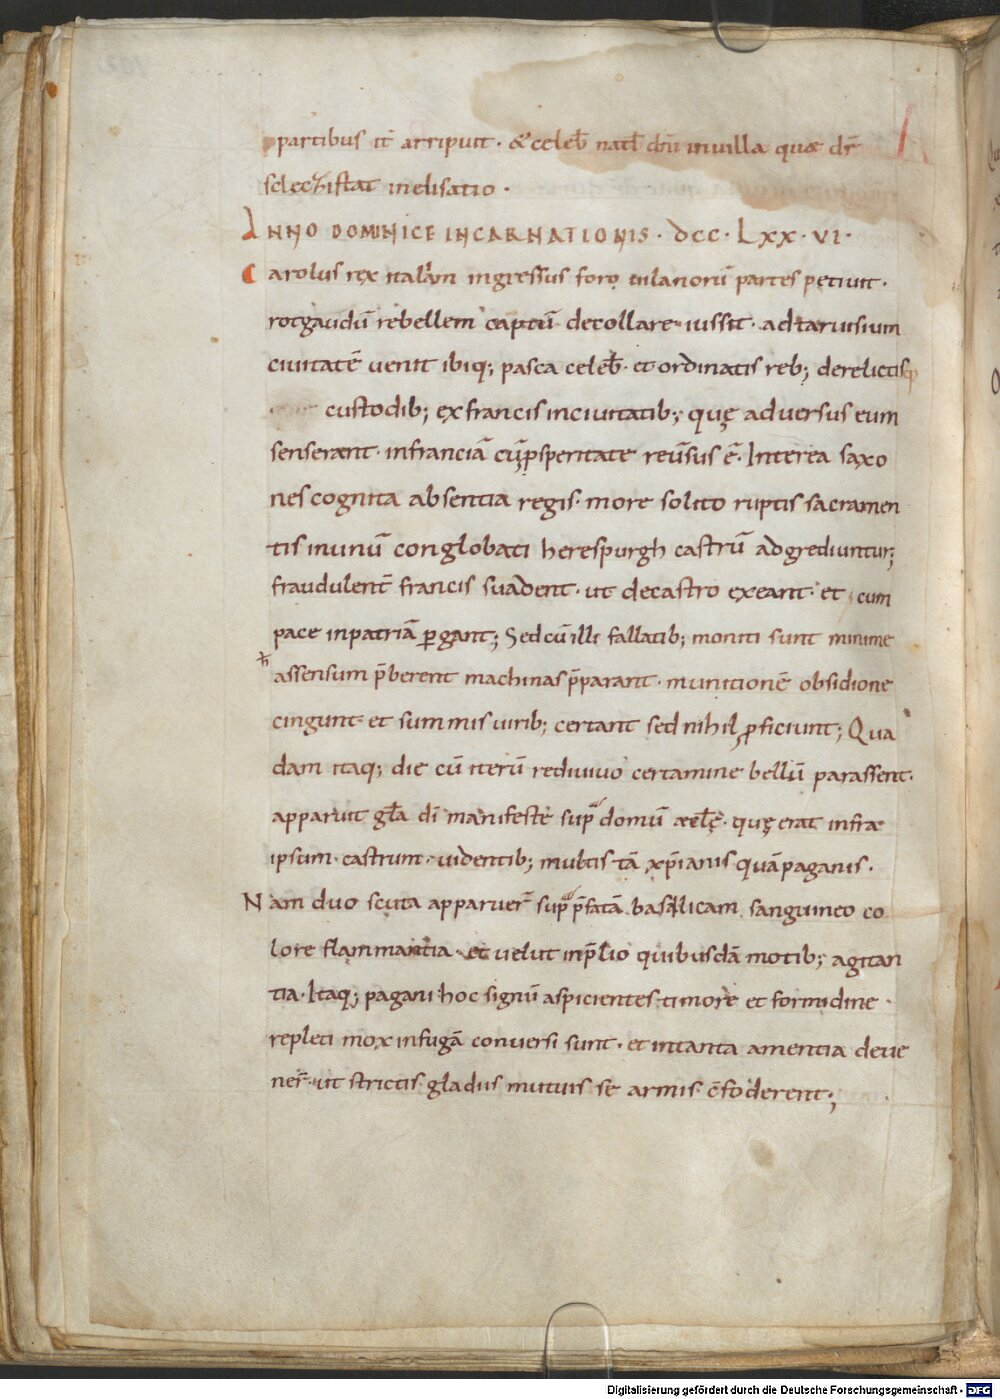 partibus iť arripuit · & celeƀ natł dńi in uilla quae dř
sclechistat in elisatio ·
ANNO DOMINICE INCARNATIONIS · DCC · LXX · VI ·
Carolus rex italiam ingressus foro iulanorū partes petiuit ·
rotgaudū rebellem captū decollare iussit · ad taruisium
ciuitatē uenit ibiq; pasca celeƀ · et ordinatis reb; derelictisq
custodib; ex francis in ciuitatib; quę aduersus eum
senserant · in franciā cū ꝓsperitate reu̅sus ē · Interea saxo
nes cognita absentia regis · more solito ruptis sacramen
tis in unū conglobati herespurgh castrū adgrediuntur;
fraudulent̄ francis suadent · ut de castro exeant · et cum
pace in patriā ꝑgant; Sed cū illi fallatib; moniti sunt minime
assensum p̄berent machinas p̄parant · munitionē obsidione
cingunt · et summis uirib; certant sed nihil ꝓficiunt; Qua
dam itaq; die cū iterū rediuiuo certamine bellū parassent ·
apparuit gła dī manifeste sup domū aecłę · quę erat infra
ipsum · castrum · uidentib; multis tā xp̄ianis quā paganis ·
Nam duo scuta apparuer̄ sup p̄fatā basilicam sanguineo co
lore flammantia · et uelut in p̄lio quibusdā motib; agitan
tia · Itaq; pagani hoc signū aspicientes timore et formidine ·
repleti mox in fugā conuersi sunt · et in tanta amentia deue
ner̄ · ut strictis gladiis mutuis se armis c̄foderent;
Digitalisierung gefördert durch die Deutsche Forschungsgemeinschaft - DFG